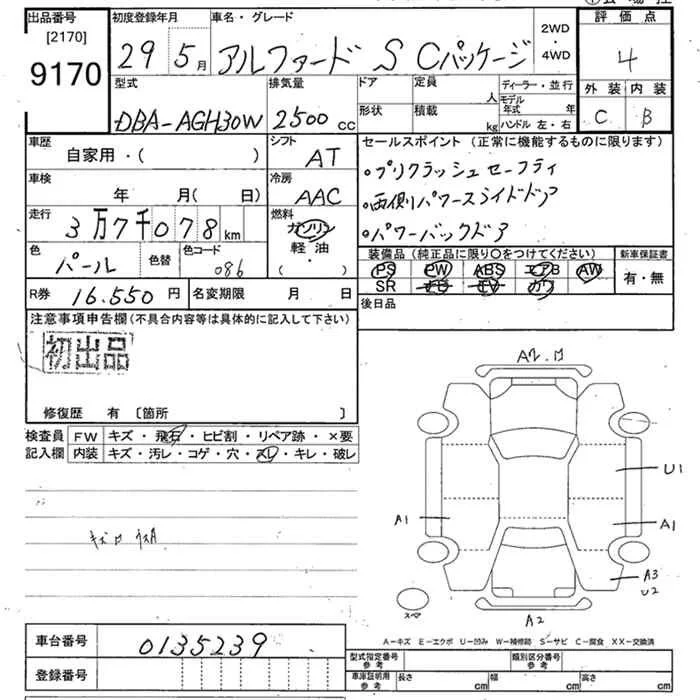 出品番号 初度登録年月 車名・グレード 評価点
[2170]
9170
29 5月 アルファード S Cパッケージ 2WD・4WD 4
型式 排気量 ドア 定員 人 ディーラー・並行 外装 内装
DBA-AGH30W 2500 cc 形状 積載 kg モデル年式 年 ハンドル 左・右 C B
車歴 シフト セールスポイント (正常に機能するものに限ります)
自家用・( ) AT
・プリクラッシュセーフティ
車検 冷房
年 月( 日) AAC
・両側パワースライドドア
走行 燃料
3万7千078km ガソリン
・パワーバックドア
軽・油
(・)
色 色替 色コード
パール 086
装備品 (純正品に限り○をつけてください) 新車保証書
PS PW ABS エアB AW 有・無
SR ナビ TV カワ
R券 16.550 円 名変期限 月 日
後日品
注意事項申告欄(不具合内容等は具体的に記入して下さい)
初出品
修復歴 有 〔箇所 〕
検査員 FW キズ・飛石・ヒビ割・リペア跡・×要
記入欄 内装 キズ・汚レ・コゲ・穴・スレ・キレ・破レ
キズ ロ
U1
A1
A1
A3
U2
スペア
A2
A-キズ E-エクボ U-凹み W-補修跡 S-サビ C-腐食 XX-交換済
車台番号 0135239
登録番号
型式指定番号 参考 類別区分番号 参考
車庫証明用 参考 長さ cm 幅 cm 高さ cm